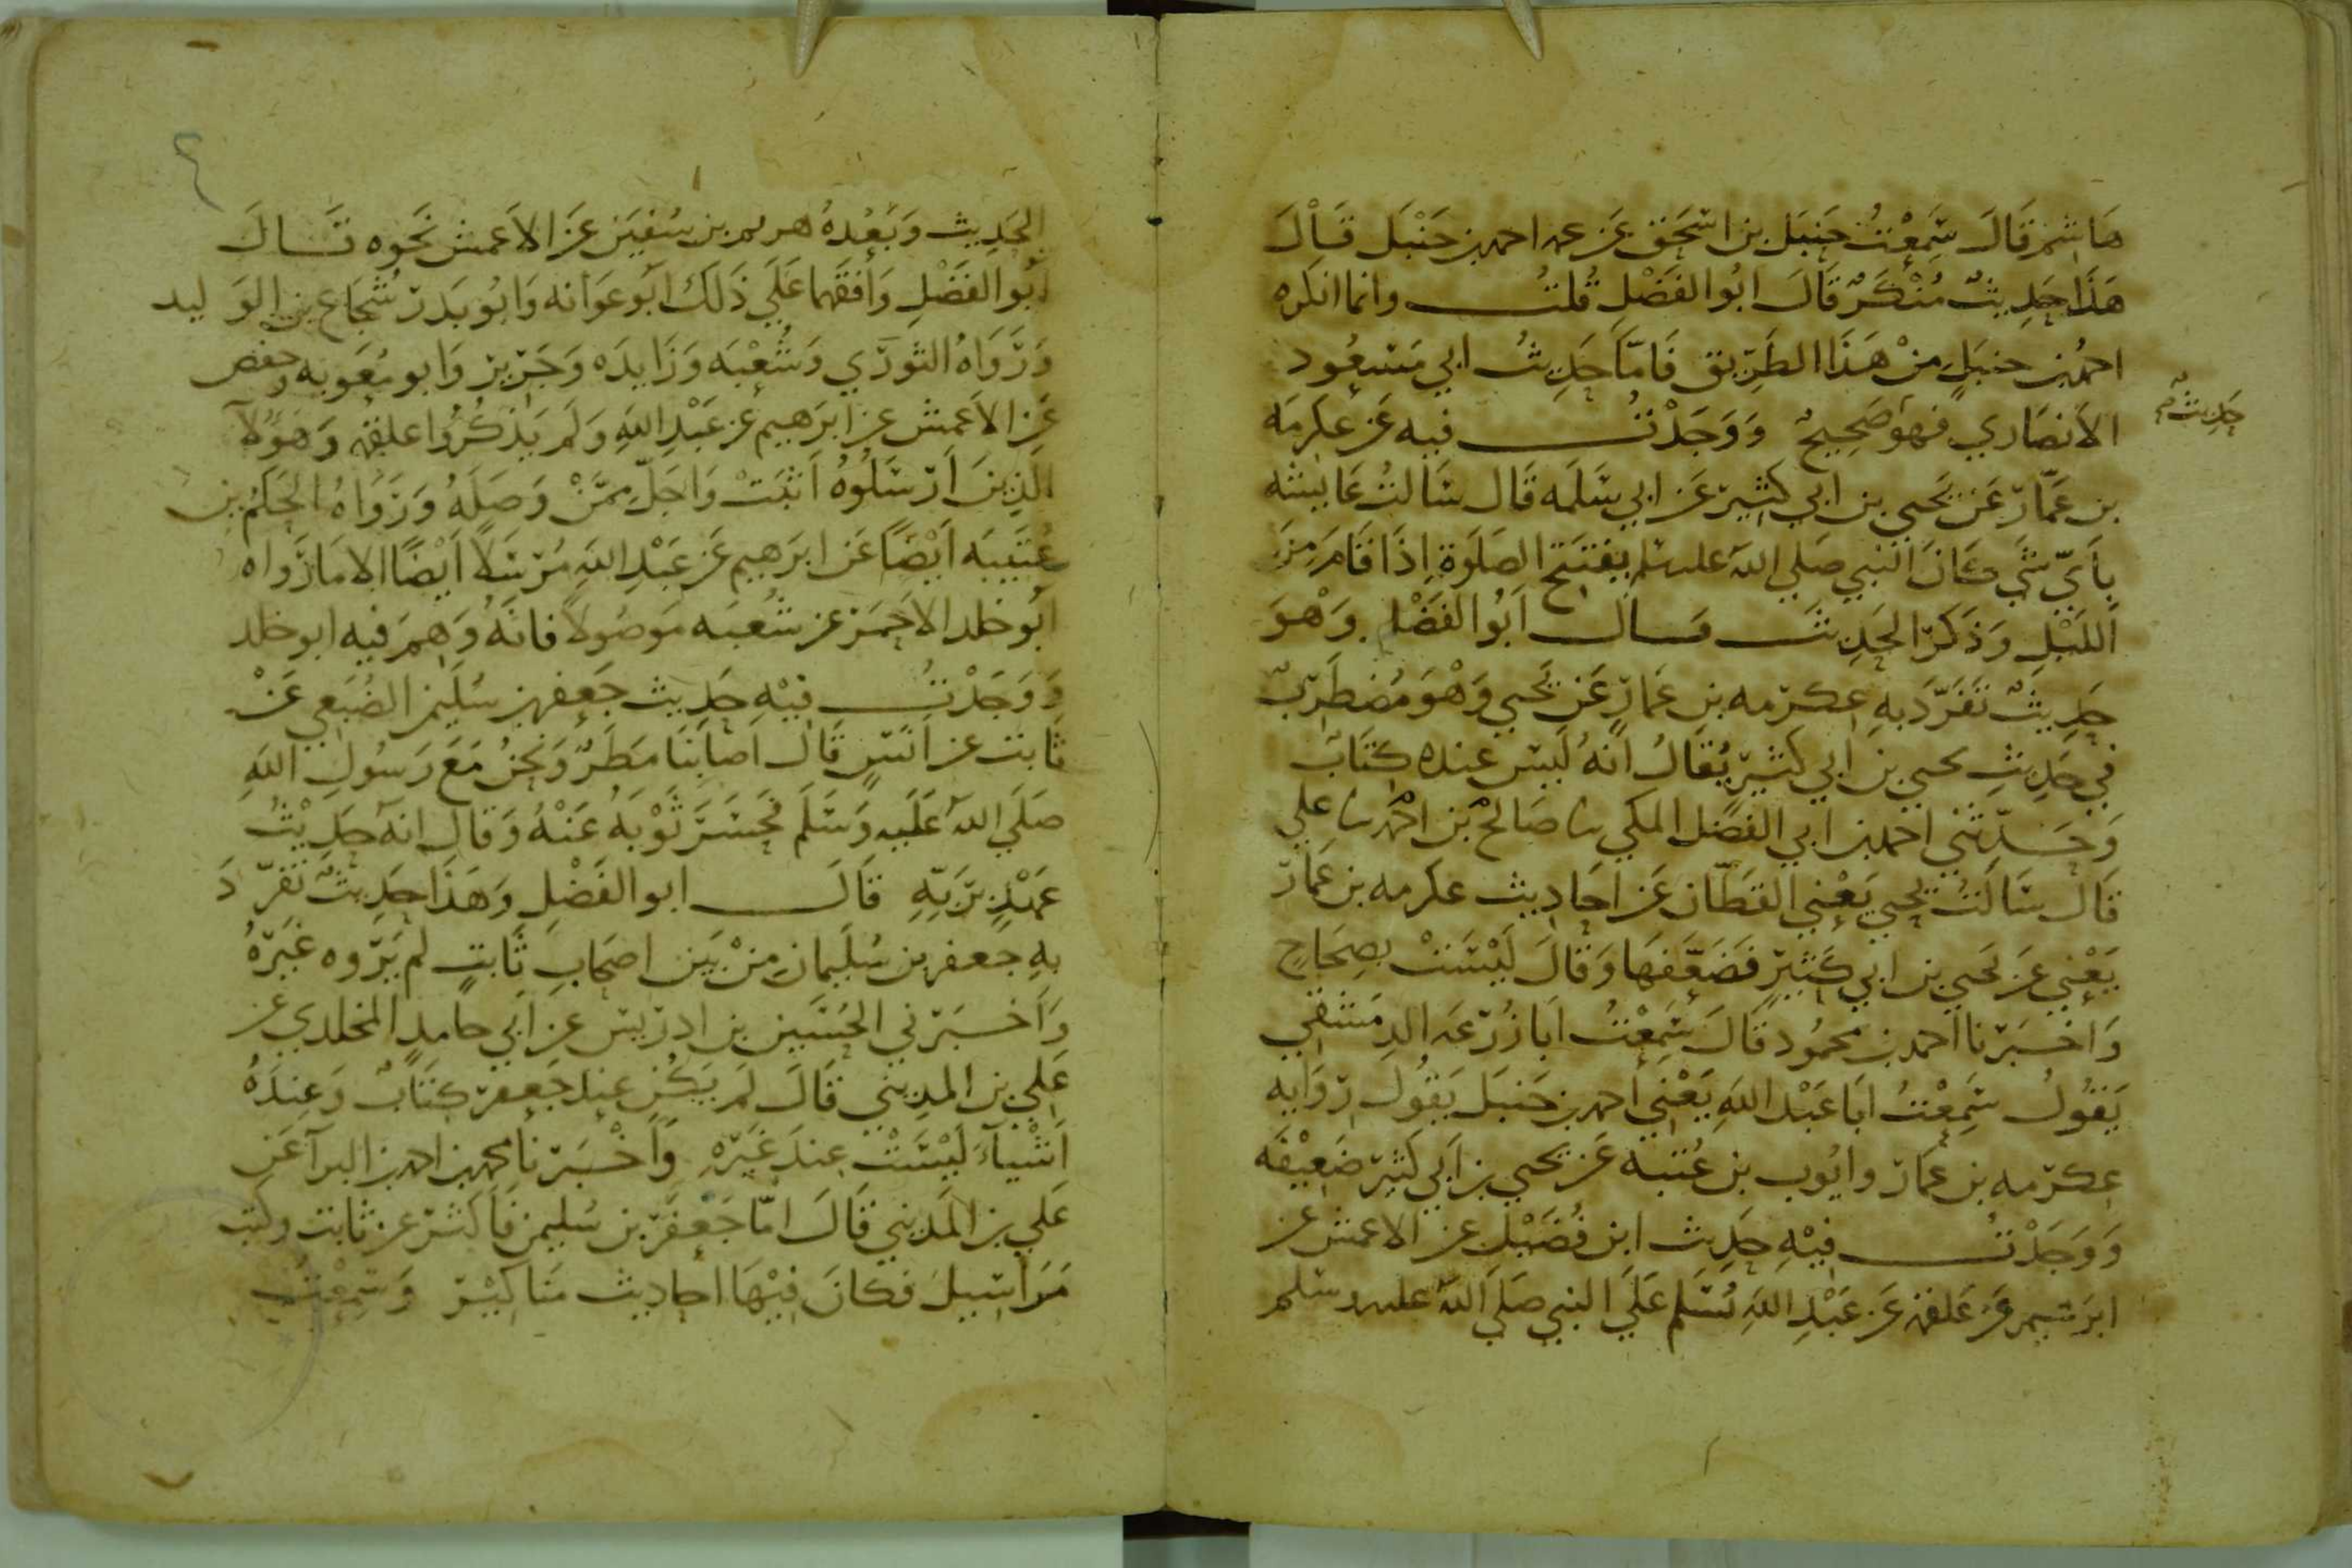 هَاشِم قَالَ سَمِعْتُ حَنبَل بن اسْحَق عَن عمه احمد بن حَنْبَل قَالَ
هَذَا حَدِيثٌ مُنْكَرٌ قَالَ ابُوالفَضْلِ قُلتُ وانما انكره
احمُد بن حنبَلٍ مِنْ هَذَا الطَرِيق فَامّا حَدِيثُ ابي مَسْعُود
الاَنصَاري فهوَ صَحِيحٌ وَوَجَدْتُ فيه عَن عِكرمَه
حَدِيثٌ
بن عَمّار عَن يَحيى بن ابي كثِير عَن ابي سَلَمَه قَال سَالتُ عَايشَه
بِاَيّ شَي كَانَ النبي صَلي اللهُ عليه وسلم يفتَتح الصَلَوة اِذَا قَامَ مِنَ
اَللَيْلِ وَذَكَر الحَدِيثَ قال اَبُوالفَضْل وَهْوَ
حَدِيثٌ تَفَرّدَ بِهِ عِكرمه بن عَمارٍ عَن يَحيى وَهْوَ مُضطَربٌ
في حَدِيثِ يحيى بن ابي كثير يُقَالُ اَنهُ لَيسَ عنده كِتَابٌ
وَحَدّثَني احمد بن ابي الفَضل المكي نا صَالح بن احمد نا علي
قَال سَالتُ يحيى يَعْني القَطّان عَن احَادِيث عكرمه بن عَمار
يَعْني عَن يَحيى بن ابي كَثِيرٍ فَضَعّفَهَا وَقَالَ لَيْسَتْ بصِحَاحٍ
وَاخبَرنا احمد بن محمُود قَالَ سَمِعْتُ ابَا زُرعَه الدِمَشقي
يَقُولُ سَمِعْتُ ابَا عَبْد اللهِ يَعْني احمد بن حَنبَل يَقُول رِوَايه
عِكرمه بن عَمار وايُوب بن عُتبه عَن يحيى بن اَبي كثِير ضَعِيفَه
وَوَجَدْتُ فِيْهِ حَدِيث ابن فُضَيْلٍ عن الاعمش عن
ابرَهيم عَن عَلقمه عَن عَبْدِ اللهِ نُسَلم عَلَى النبي صَلى اللهُ عليه وسلم
٤
الحَدِيث وَبَعْدهُ هريم بن سُفيَن عَن الاَعمش نَحْوه قَالَ
ابُوالفَضْلِ وَافَقَهما عَلَى ذَلكَ اَبُوعَوَانه وَابُو بَدر شُجَاع بن الوَليد
وَرَوَاهُ الثورَي وَشُعْبَه وَزَايدَه وَجَرِير وَابو مُعَويه وحفص
عَن الاَعمش عن ابرَهيم عن عَبْدِ اللهِ وَلَم يَذكُرُوا علقمه وَهَؤلآ
الذِينَ اَرْسَلُوهُ اَثبَتُ وَاجَلّ مِمّنْ وَصَلَهُ وَرَوَاهُ الحَكمُ بن
عُتَيبَه اَيْضًا عَن ابرَهيم عَن عَبْدِ اللهِ مُرسَلاً اَيْضًا الا مَا رَوَاه
ابُو خلد الاَحمَر عن شُعبَه مَوصُولاً فانهُ وَهِمَ فيه ابو خلد
وَوَجَدْتُ فِيْهِ حَدِيث جَعفر بن سُلَيمن الضُبَعي عَنْ
ثابت عن اَنسٍ قَال اَصابَنَا مَطَرٌ وَنحنُ مَعَ رَسُولِ اللهِ
صَلَى اللهُ عَلَيهِ وَسَلَم فَحَسَرَ ثَوْبَهُ عَنْهُ وَقَال انهُ حَدِيْثُ
عَهْدٍ برَبّهِ قَالَ ابوالفَضْلِ وَهَذَا حَدِيثٌ تَفَرّدَ
بِهِ جَعفر بن سُلَيمان مِنْ بَين اصحَابِ ثَابتٍ لم يَروه غَيرُهُ
وَاَخبَرني الحُسَين بن ادريس عن اَبي حامدٍ المخلدي عن
عَلي بن المدِيني قَالَ لَم يَكُن عِند جَعفر كِتَابٌ وَعِندَهُ
اَشْيآءَ لَيْسَتْ عِندَ غَيره وَاَخْبَرنا محمد بن احمد بن البرآ عَن
عَلي بن المَديني قَالَ امّا جَعْفَر بن سُليمن فَاَكثر عن ثابت وكتب
مَرَاسيلَ فَكانَ فِيْهَا احاديث مَناكير وَسَمِعْتُ